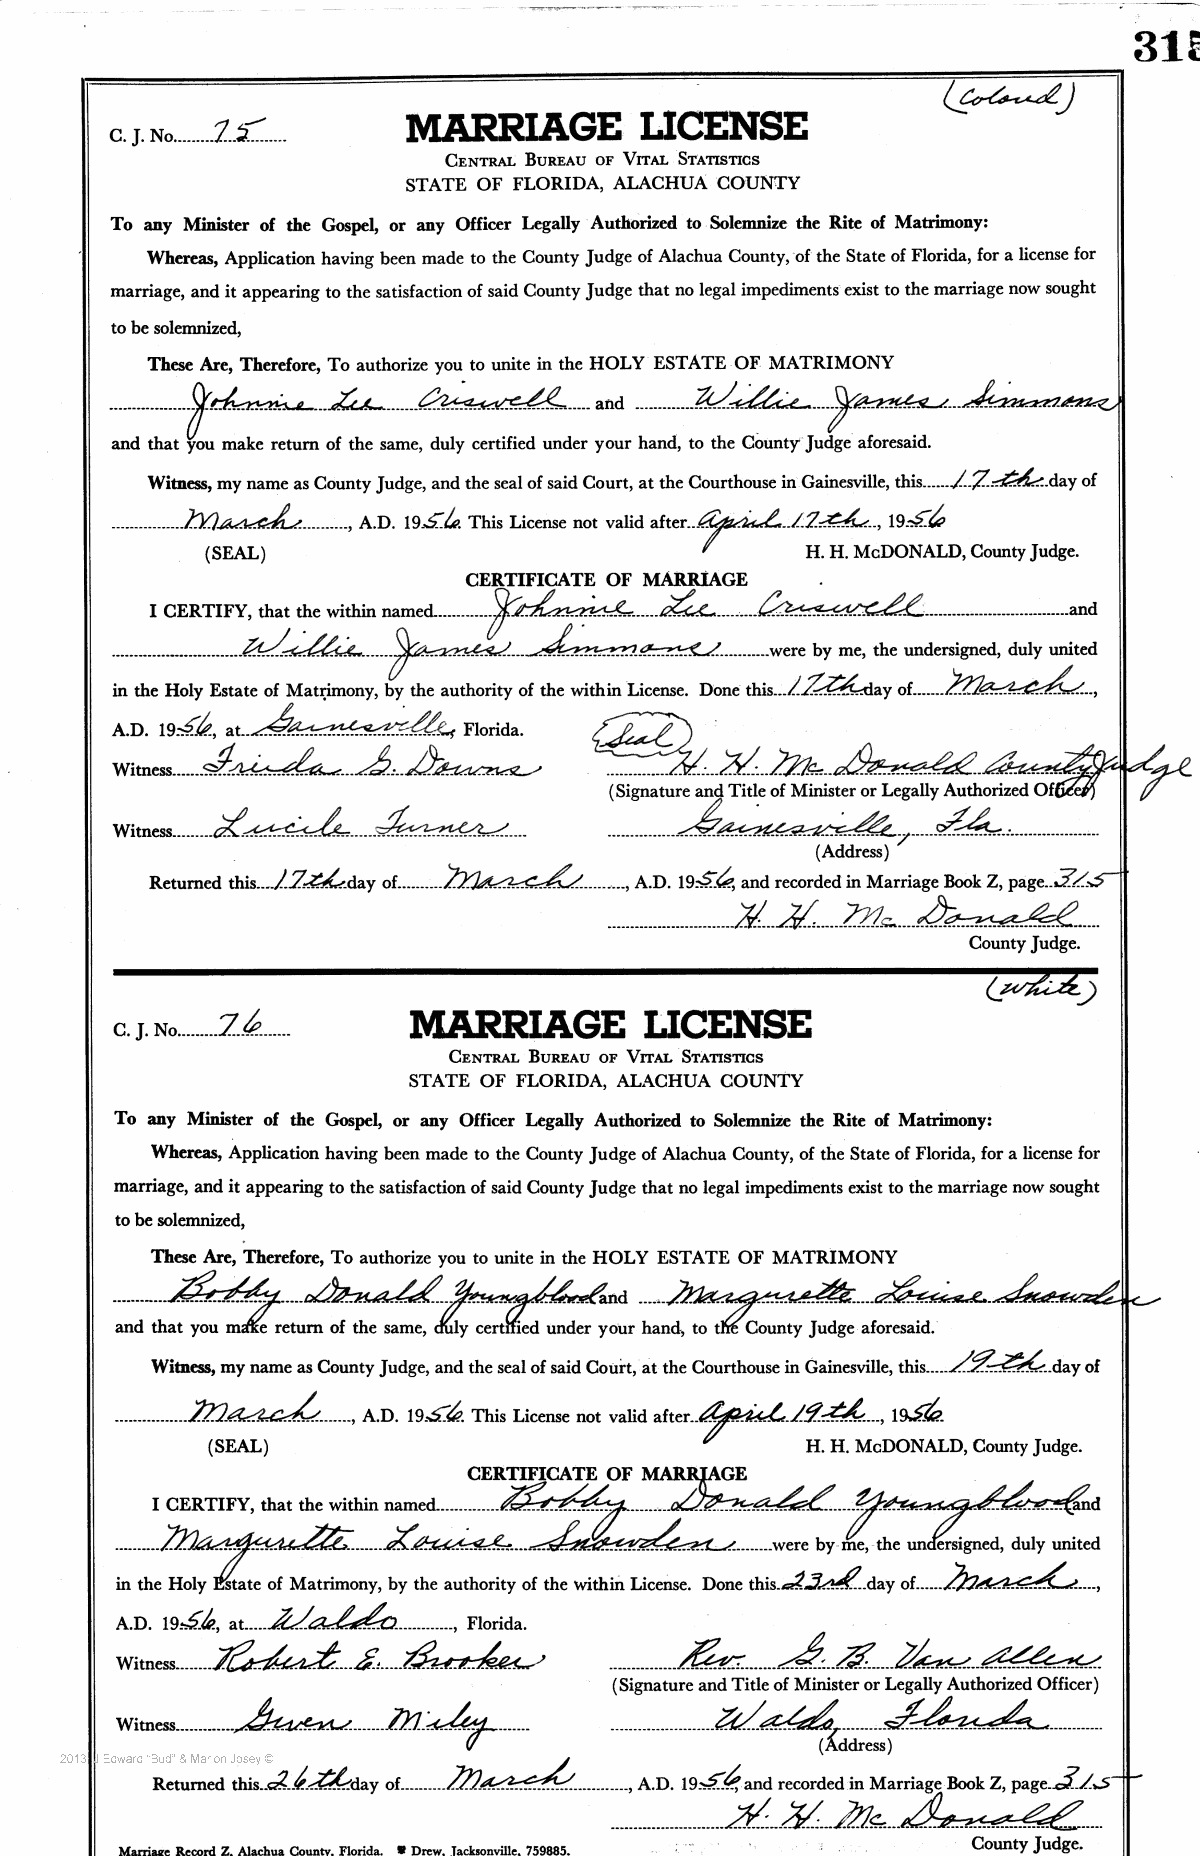 315
(Colored)
C. J. No. 75
MARRIAGE LICENSE
CENTRAL BUREAU OF VITAL STATISTICS
STATE OF FLORIDA, ALACHUA COUNTY
To any Minister of the Gospel, or any Officer Legally Authorized to Solemnize the Rite of Matrimony:
Whereas, Application having been made to the County Judge of Alachua County, of the State of Florida, for a license for
marriage, and it appearing to the satisfaction of said County Judge that no legal impediments exist to the marriage now sought
to be solemnized,
These Are, Therefore, To authorize you to unite in the HOLY ESTATE OF MATRIMONY
Johnnie Lee Criswell and Willie James Simmons
and that you make return of the same, duly certified under your hand, to the County Judge aforesaid.
Witness, my name as County Judge, and the seal of said Court, at the Courthouse in Gainesville, this 17th day of
March, A.D. 1956. This License not valid after April 17th, 1956
(SEAL) H. H. McDONALD, County Judge.
CERTIFICATE OF MARRIAGE
I CERTIFY, that the within named Johnnie Lee Criswell and
Willie James Simmons were by me, the undersigned, duly united
in the Holy Estate of Matrimony, by the authority of the within License. Done this 17th day of March,
A.D. 1956, at Gainesville, Florida. Seal
Witness Freida G. Downs H. H. McDonald County Judge
(Signature and Title of Minister or Legally Authorized Officer)
Witness Lucile Turner Gainesville, Fla.
(Address)
Returned this 17th day of March, A.D. 1956, and recorded in Marriage Book Z, page 315
H. H. McDonald
County Judge.
(White)
C. J. No. 76
MARRIAGE LICENSE
CENTRAL BUREAU OF VITAL STATISTICS
STATE OF FLORIDA, ALACHUA COUNTY
To any Minister of the Gospel, or any Officer Legally Authorized to Solemnize the Rite of Matrimony:
Whereas, Application having been made to the County Judge of Alachua County, of the State of Florida, for a license for
marriage, and it appearing to the satisfaction of said County Judge that no legal impediments exist to the marriage now sought
to be solemnized,
These Are, Therefore, To authorize you to unite in the HOLY ESTATE OF MATRIMONY
Bobby Donald Youngblood and Margurette Louise Snowden
and that you make return of the same, duly certified under your hand, to the County Judge aforesaid.
Witness, my name as County Judge, and the seal of said Court, at the Courthouse in Gainesville, this 19th day of
March, A.D. 1956. This License not valid after April 19th, 1956
(SEAL) H. H. McDONALD, County Judge.
CERTIFICATE OF MARRIAGE
I CERTIFY, that the within named Bobby Donald Youngblood and
Margurette Louise Snowden were by me, the undersigned, duly united
in the Holy Estate of Matrimony, by the authority of the within License. Done this 23rd day of March,
A.D. 1956, at Waldo, Florida.
Witness Robert E. Brooker Rev. G. B. Van Allen
(Signature and Title of Minister or Legally Authorized Officer)
Witness Gwen Miley Waldo, Florida
(Address)
2013 J Edward "Bud" & Marion Josey ©
Returned this 26th day of March, A.D. 1956, and recorded in Marriage Book Z, page 315
H. H. McDonald
County Judge.
Marriage Record Z, Alachua County, Florida. Drew, Jacksonville, 759885.